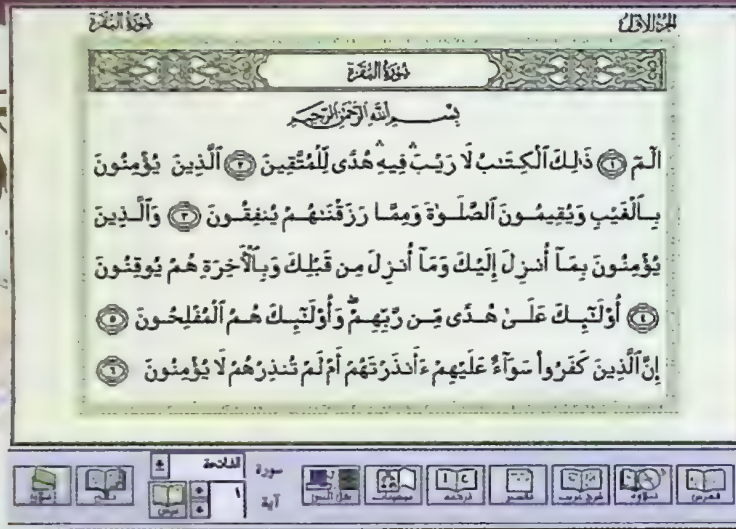 الجزء الأول
سورة البقرة
سورة البقرة
بسم الله الرحمن الرحيم
الٓمٓ ١ ذَٰلِكَ ٱلْكِتَٰبُ لَا رَيْبَۛ فِيهِۛ هُدًى لِّلْمُتَّقِينَ ٢ ٱلَّذِينَ يُؤْمِنُونَ
بِٱلْغَيْبِ وَيُقِيمُونَ ٱلصَّلَوٰةَ وَمِمَّا رَزَقْنَٰهُمْ يُنفِقُونَ ٣ وَٱلَّذِينَ
يُؤْمِنُونَ بِمَآ أُنزِلَ إِلَيْكَ وَمَآ أُنزِلَ مِن قَبْلِكَ وَبِٱلْءَاخِرَةِ هُمْ يُوقِنُونَ
٤ أُوْلَٰٓئِكَ عَلَىٰ هُدًى مِّن رَّبِّهِمْۖ وَأُوْلَٰٓئِكَ هُمُ ٱلْمُفْلِحُونَ ٥
إِنَّ ٱلَّذِينَ كَفَرُوا۟ سَوَآءٌ عَلَيْهِمْ ءَأَنذَرْتَهُمْ أَمْ لَمْ تُنذِرْهُمْ لَا يُؤْمِنُونَ ٦
سورة الفاتحة
آية ١
فهرس تلاوة شرح غريب تفسير ترجمة موضوعات عرض